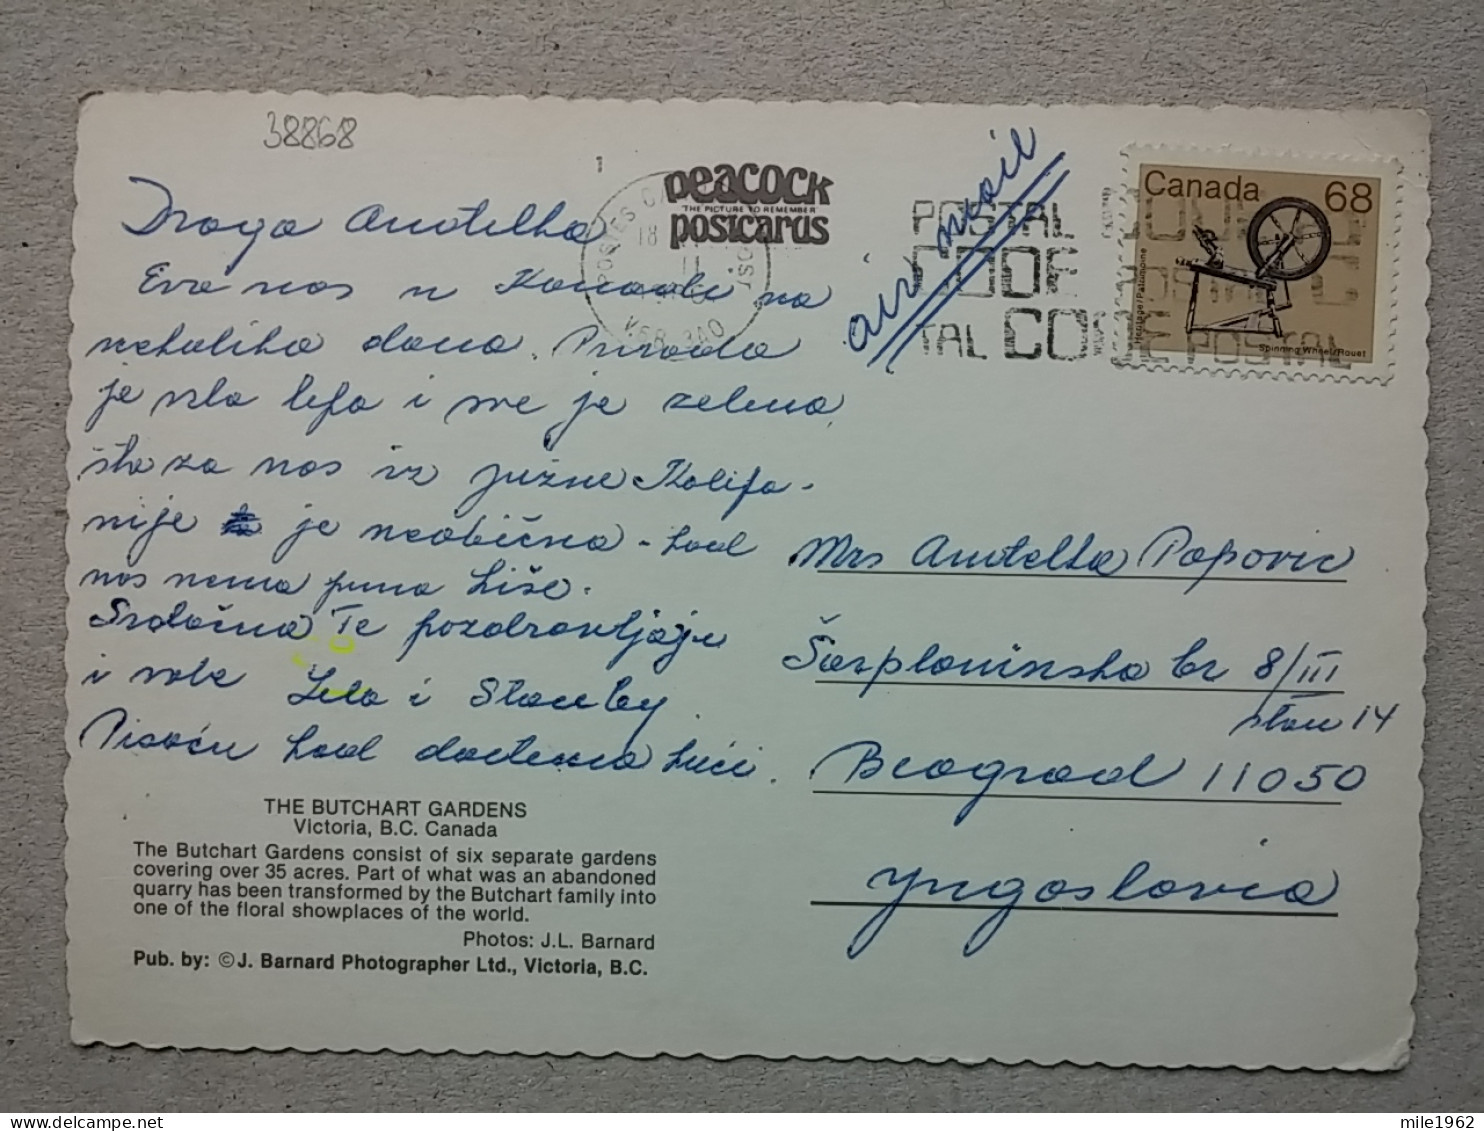 38868
1
peacock
THE PICTURE TO REMEMBER
postcards
air mail
POSTAL CODE
CODE POSTAL
TAL CODE POSTAL
Canada 68
Heritage/Patrimoine
Spinning Wheel/Rouet
Draga Anđelka
Evo nas u Kanadi na
nekoliko dana. Priroda
je vrlo lepa i sve je zelena
što za nas iz južne Kalifo-
nije je neobično - kod
nas nema puno kiše.
Srdačno Te pozdravljaju
i vole Lela i Stanley
Pisaću kod dođemo kući.
Mrs Anđelka Popovic
Šarplaninska br 8/III
stan 14
Beograd 11050
Yugoslavia
THE BUTCHART GARDENS
Victoria, B.C. Canada
The Butchart Gardens consist of six separate gardens
covering over 35 acres. Part of what was an abandoned
quarry has been transformed by the Butchart family into
one of the floral showplaces of the world.
Photos: J.L. Barnard
Pub. by: ©J. Barnard Photographer Ltd., Victoria, B.C.
mile1962